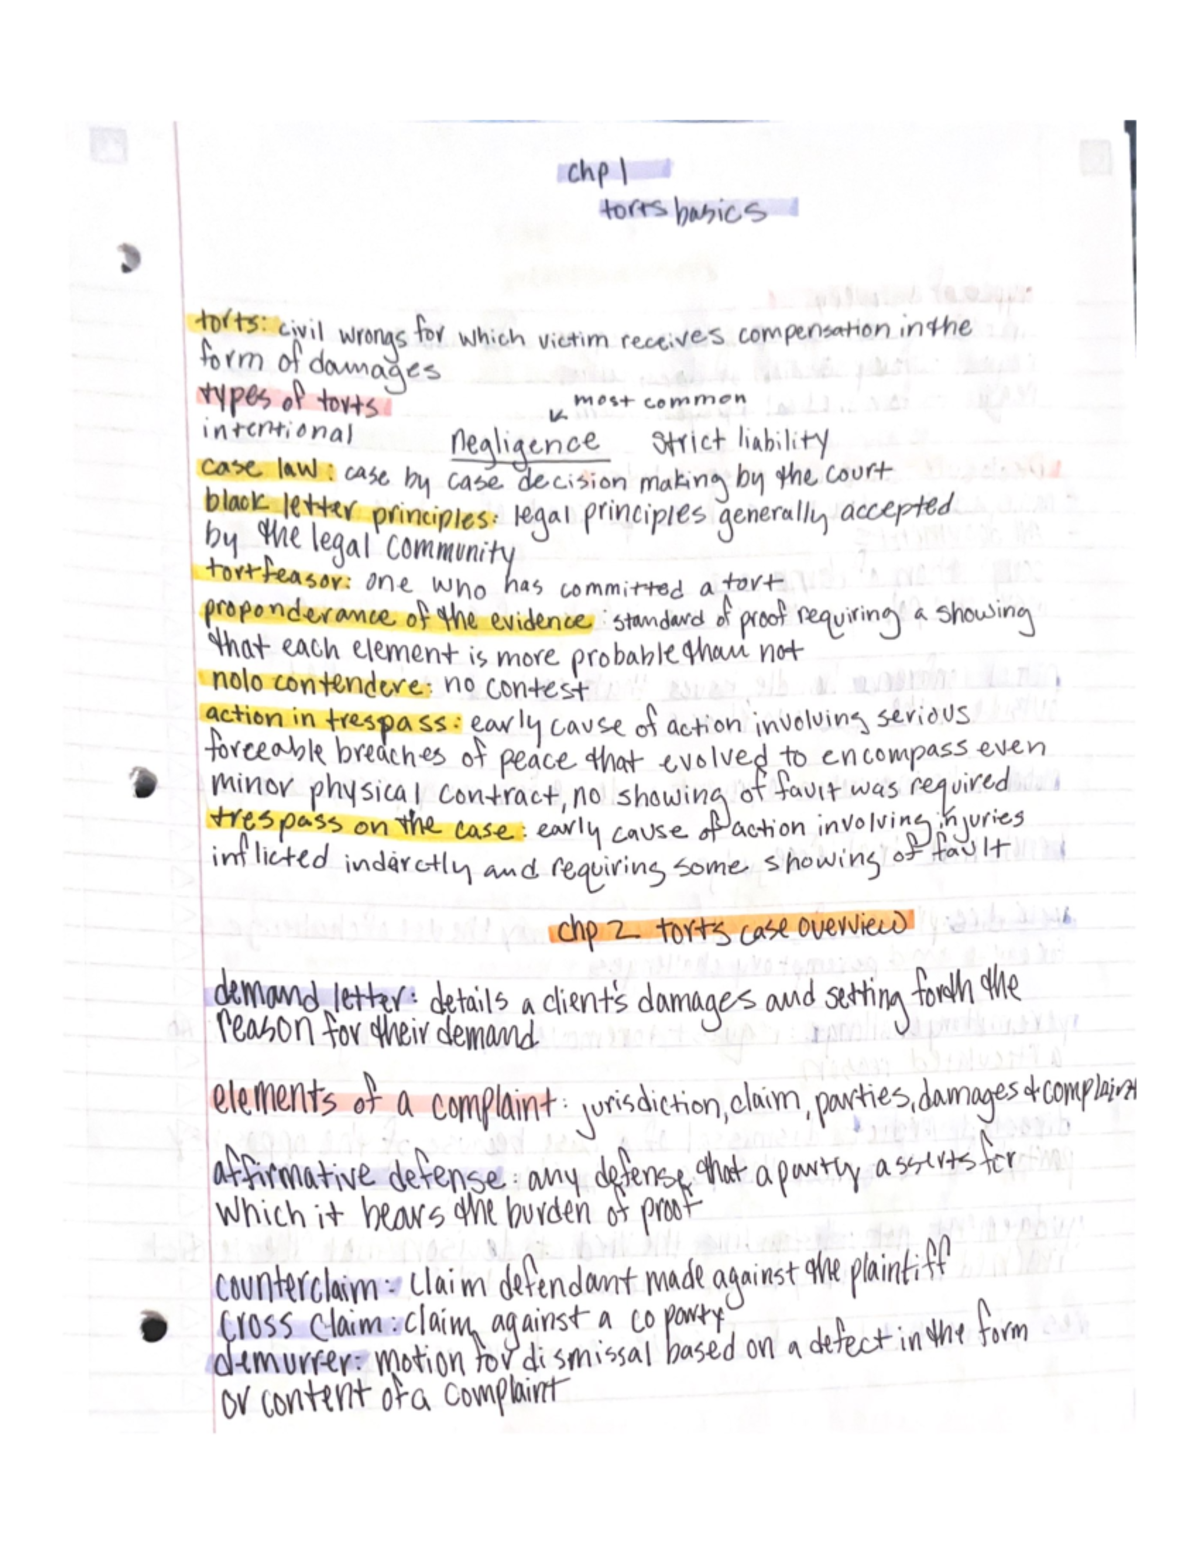 chp 1
torts basics
torts: civil wrongs for which victim receives compensation in the
form of damages
types of torts
most common
intentional negligence strict liability
case law: case by case decision making by the court
black letter principles: legal principles generally accepted
by the legal community
tortfeasor: one who has committed a tort
proponderance of the evidence: standard of proof requiring a showing
that each element is more probable than not
nolo contendere: no contest
action in trespass: early cause of action involving serious
forceable breaches of peace that evolved to encompass even
minor physical contract, no showing of fault was required
trespass on the case: early cause of action involving injuries
inflicted indirctly and requiring some showing of fault
chp 2 torts case overview
demand letter: details a client's damages and setting forth the
reason for their demand
elements of a complaint: jurisdiction, claim, parties, damages & complaint
affirmative defense: any defense that a party asserts for
which it bears the burden of proof
counterclaim: claim defendant made against the plaintiff
cross claim: claim against a co party
demurrer: motion for dismissal based on a defect in the form
or content of a complaint